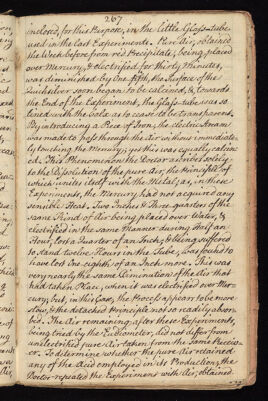 267
inclosed, for this Purpose, in the little Glass-tube
used in the last Experiments. Pure Air, obtained
the Week before from red Precipitate, being placed
over Mercury, & electrified for thirty Minutes,
was diminished by One-fifth, the Surface of the
Quicksilver soon began to be calcined, & towards
the End of the Experiment, the Glass-tube was so
lined with the Calx as to cease to be transparent.
By introducing a Piece of Iron, the electric stream
was made to pass through the Air without immediate-
ly touching the Mercury; yet this was equally calcin-
ed. This Phenomenon the Doctor ascribes solely
to the Dissolution of the pure Air, the Principle of
which unites itself with the Metal; as, in these
Experiments, the Mercury had not acquired any
sensible Heat. Two Inches & Three-quarters of the
same Kind of Air being placed over Water, &
electrified in the same Manner during half an
Hour, lost a Quarter of an Inch; & being suffered
to stand twelve Hours in the Tube, was found to
have lost One eighth of an Inch more. This was
very nearly the same Diminution of the Air that
had taken Place, when it was electrified over Mer-
cury; but, in this Case, the Process appears to be more
slow, & the detached Principle not so readily absor-
bed. The Air remaining, after these Experiments,
being tried by the Eudiometer, did not differ from
unelectrified pure Air taken from the same Receiv-
er. To determine whether the pure Air retained
any of the Acid employed in its Production, the
Doctor repeated the Experiment with Air, obtained